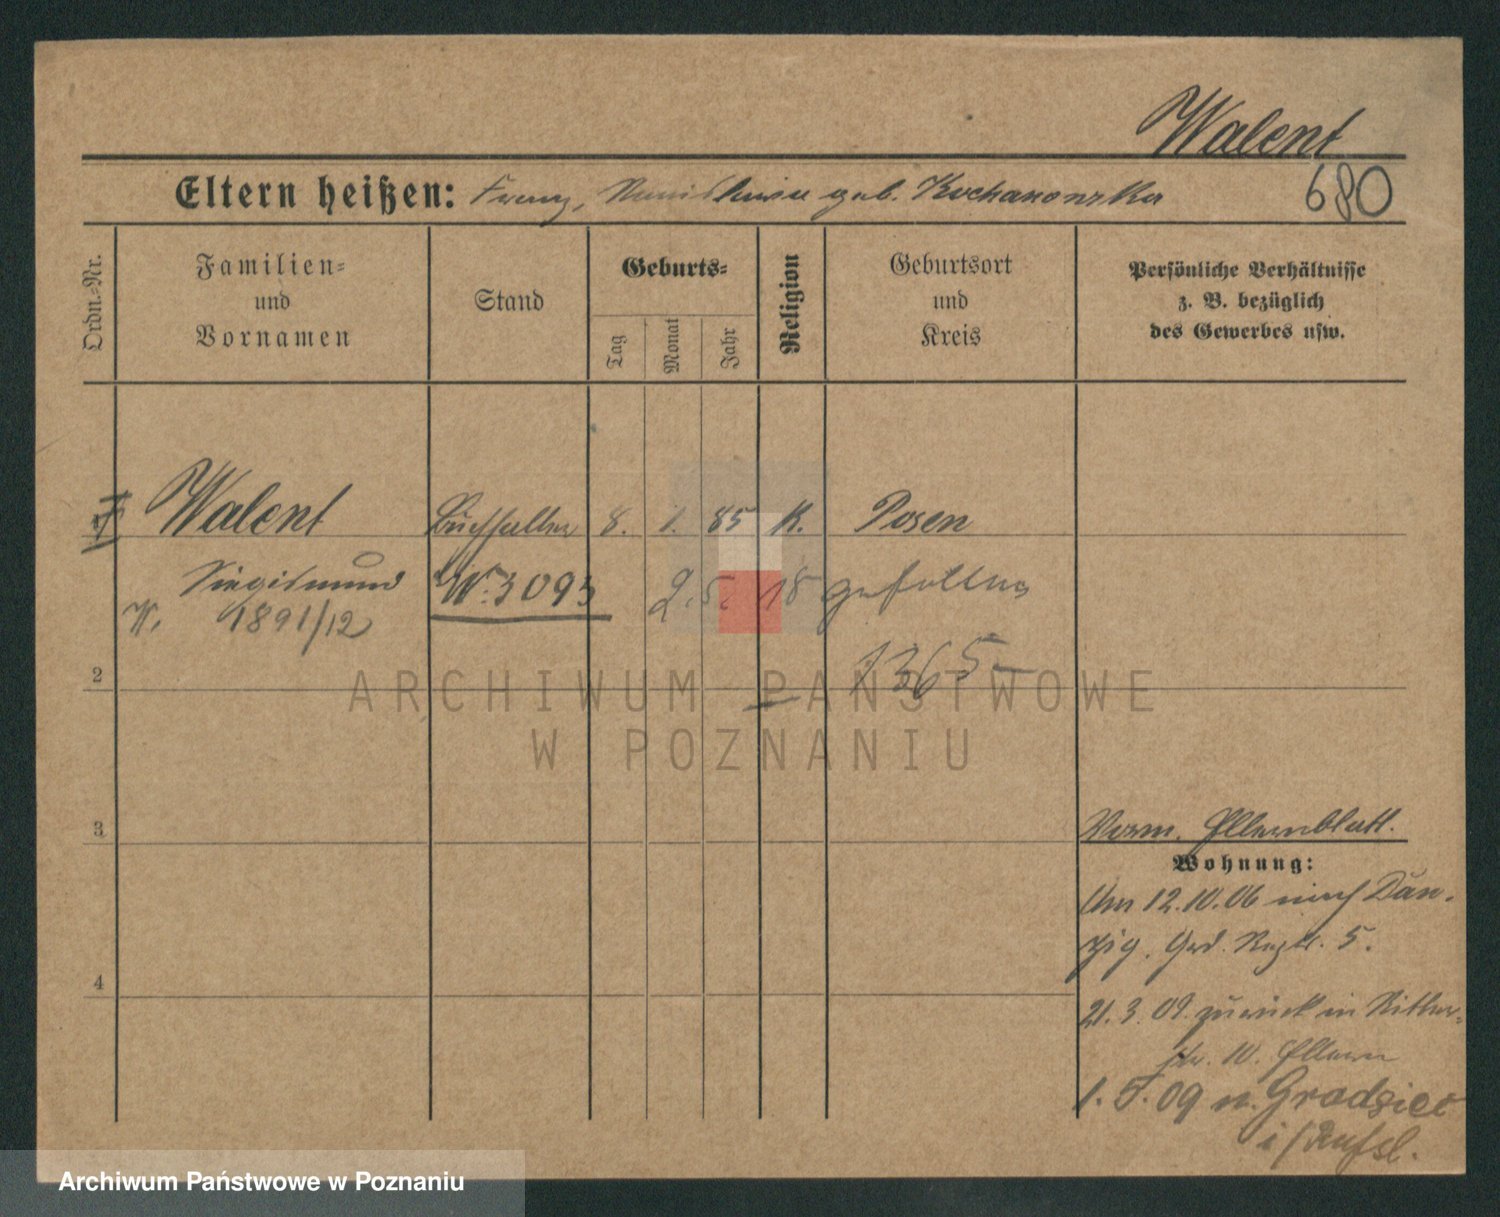 Walent
Eltern heißen: Franz, Stanislawa geb. Kochanowska
680
Ordn.-Nr.
Familien-
und
Vornamen
Stand
Geburts-
Tag
Monat
Jahr
Religion
Geburtsort
und
Kreis
Persönliche Verhältnisse
z. B. bezüglich
des Gewerbes usw.
1 Walent Buchhalter 8. 1. 85 K. Posen
Siegismund W. 3093 18 gefallen
W. 1891/12
1365
2
3
4
Vorm. Elternblatt.
Wohnung:
Am 12.10.06 nach Dan-
zig. 5.
21.3.09. zurück in Ritter-
str. 10. Eltern
1.5.09 n. Gradziec
i/Russl.
ARCHIWUM PAŃSTWOWE
W POZNANIU
Archiwum Państwowe w Poznaniu